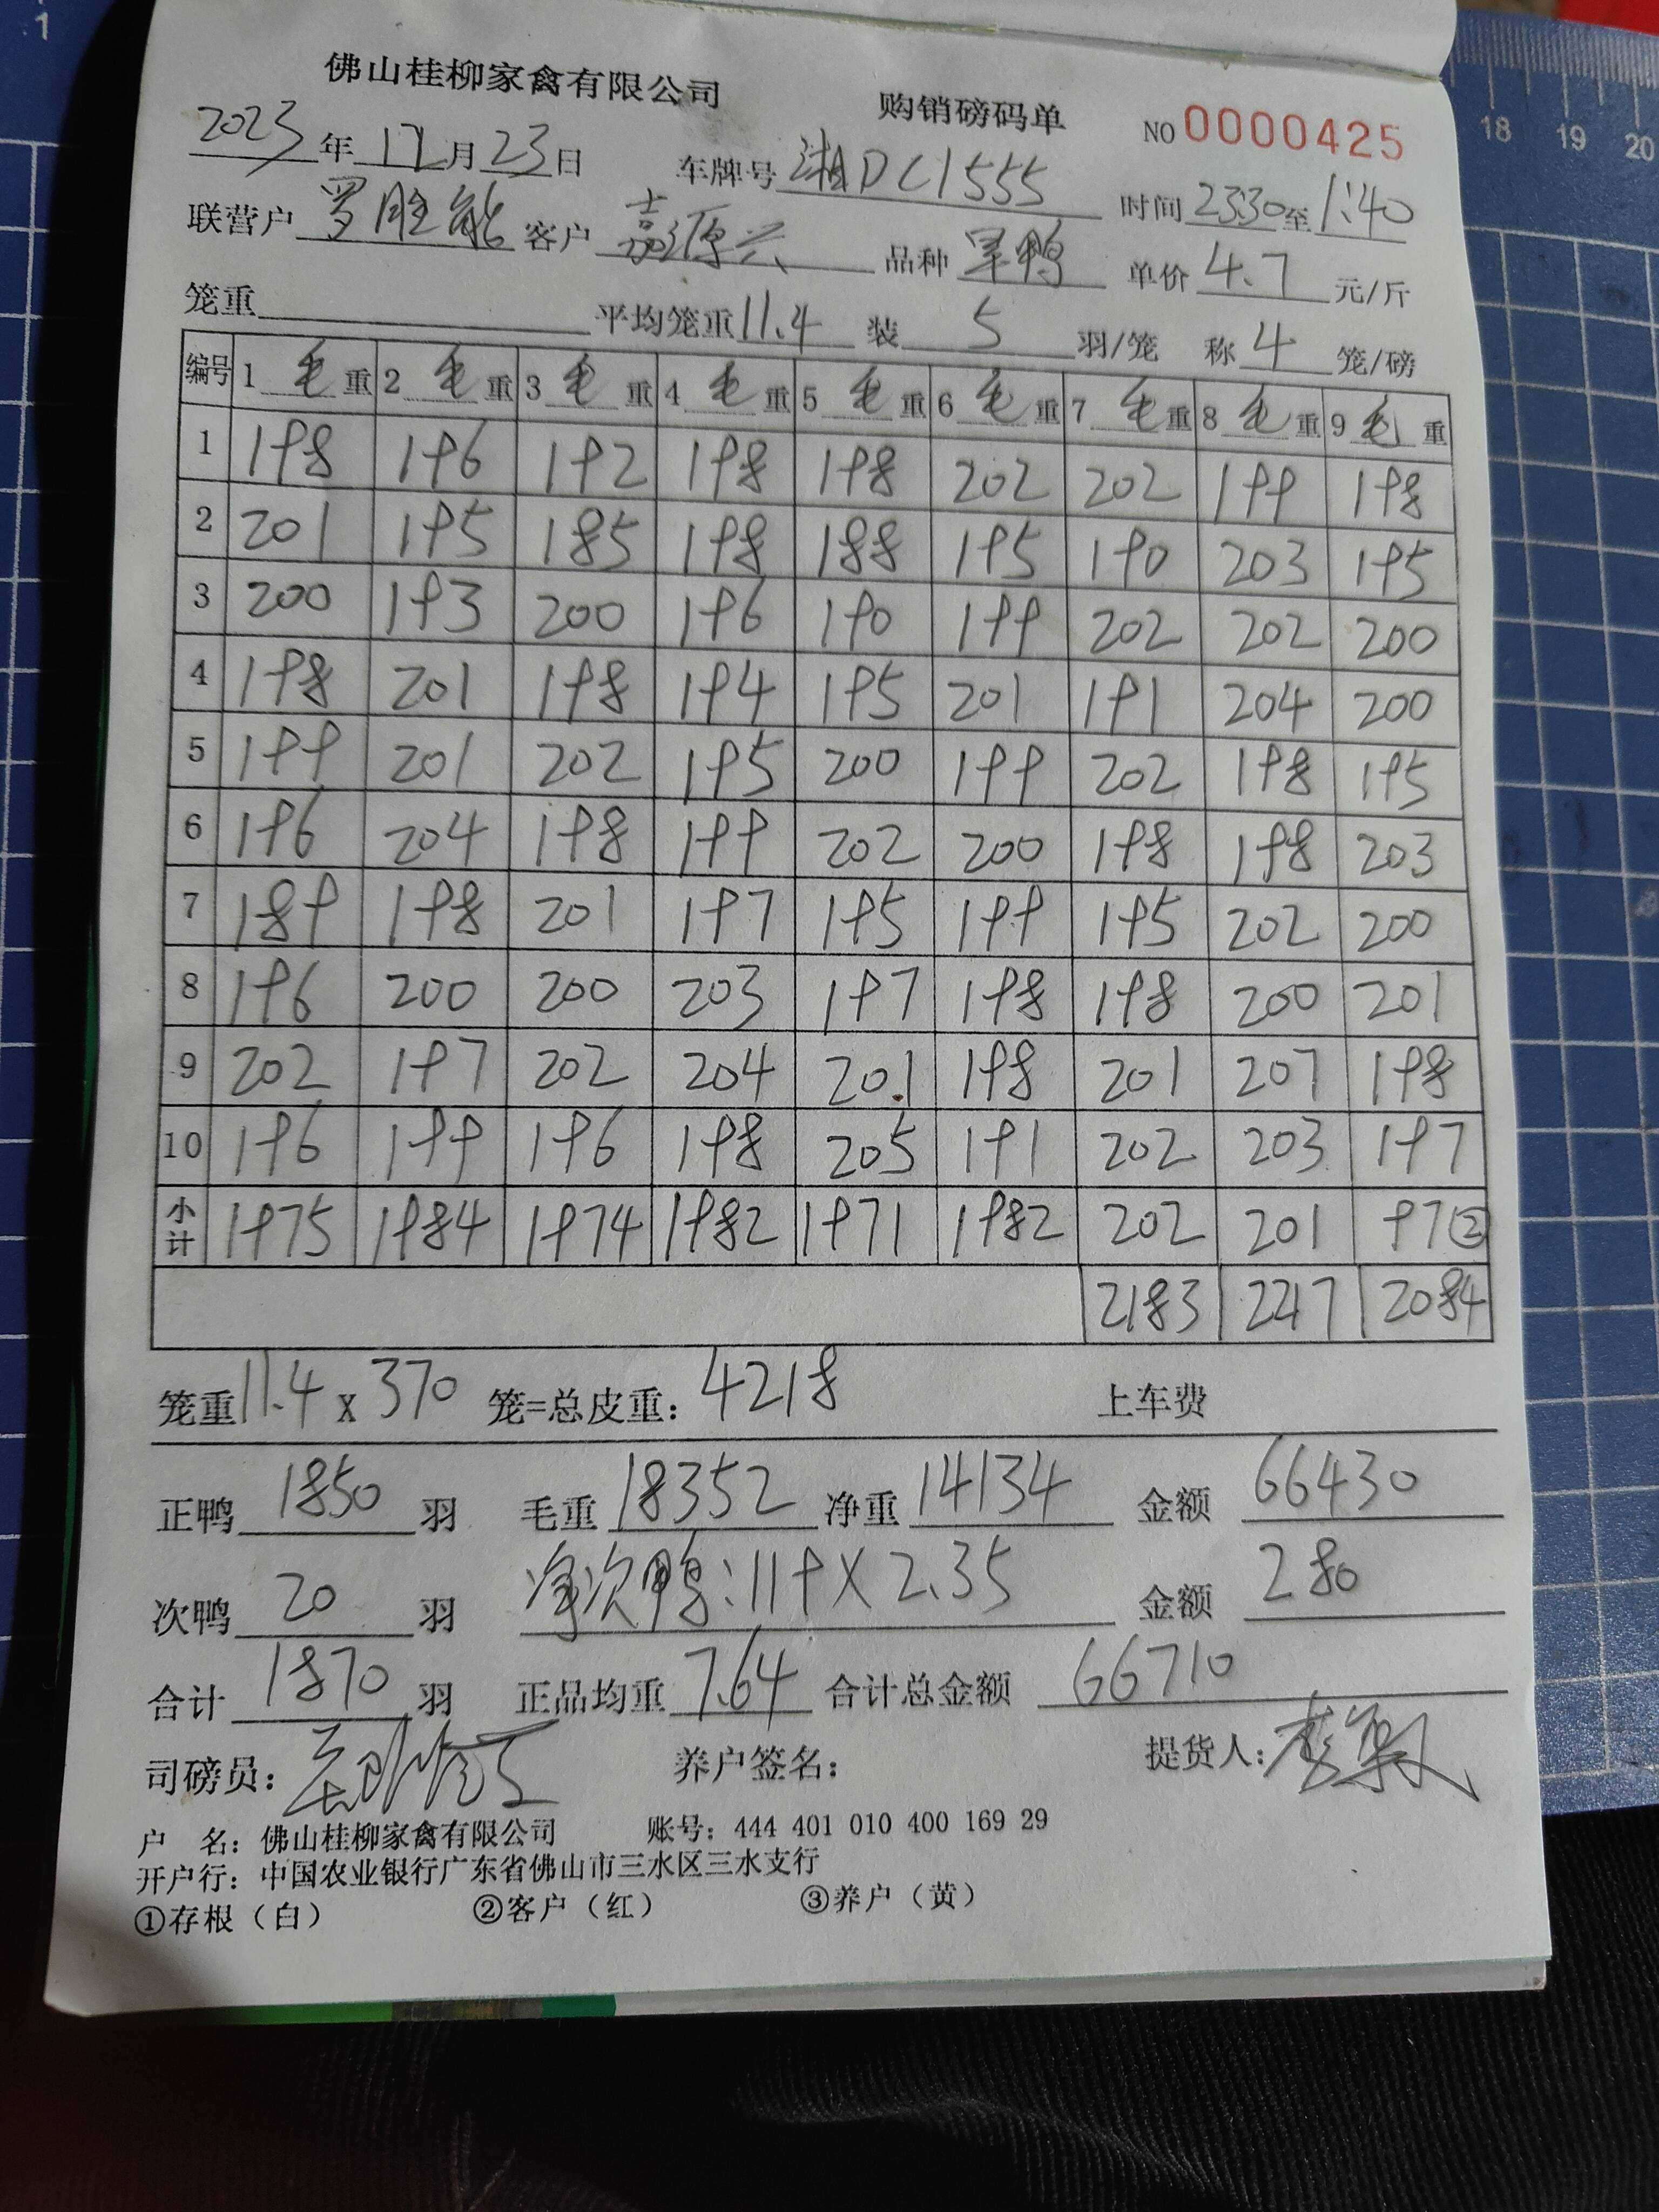 佛山桂柳家禽有限公司 购销磅码单 NO 0000425
2023年12月23日 车牌号 湘DC1555 时间 23:30至1:40
联营户 罗胜能 客户 嘉源兴 品种 单价 4.7 元/斤
笼重 平均笼重 11.4 装 5 羽/笼 称 4 笼/磅
编号 1 毛重 2 毛重 3 毛重 4 毛重 5 毛重 6 毛重 7 毛重 8 毛重 9 毛重
1 198 196 192 198 198 202 202 199 198
2 201 195 185 198 188 195 190 203 195
3 200 193 200 196 190 199 202 202 200
4 198 201 198 194 195 201 191 204 200
5 199 201 202 195 200 199 202 198 195
6 196 204 198 199 202 200 198 198 203
7 189 198 201 197 195 199 195 202 200
8 196 200 200 203 197 198 198 200 201
9 202 197 202 204 201 198 201 207 198
10 196 199 196 198 205 191 202 203 197
小计 1975 1984 1974 1982 1971 1982 202 201 97②
2183 2217 2084
笼重 11.4 x 370 笼=总皮重: 4218 上车费
正鸭 1850 羽 毛重 18352 净重 14134 金额 66430
次鸭 20 羽 净次鸭:119X2.35 金额 280
合计 1870 羽 正品均重 7.64 合计总金额 66710
司磅员: 养户签名: 提货人:
户 名: 佛山桂柳家禽有限公司 账号: 444 401 010 400 169 29
开户行: 中国农业银行广东省佛山市三水区三水支行
①存根(白) ②客户(红) ③养户(黄)
1 18 19 20